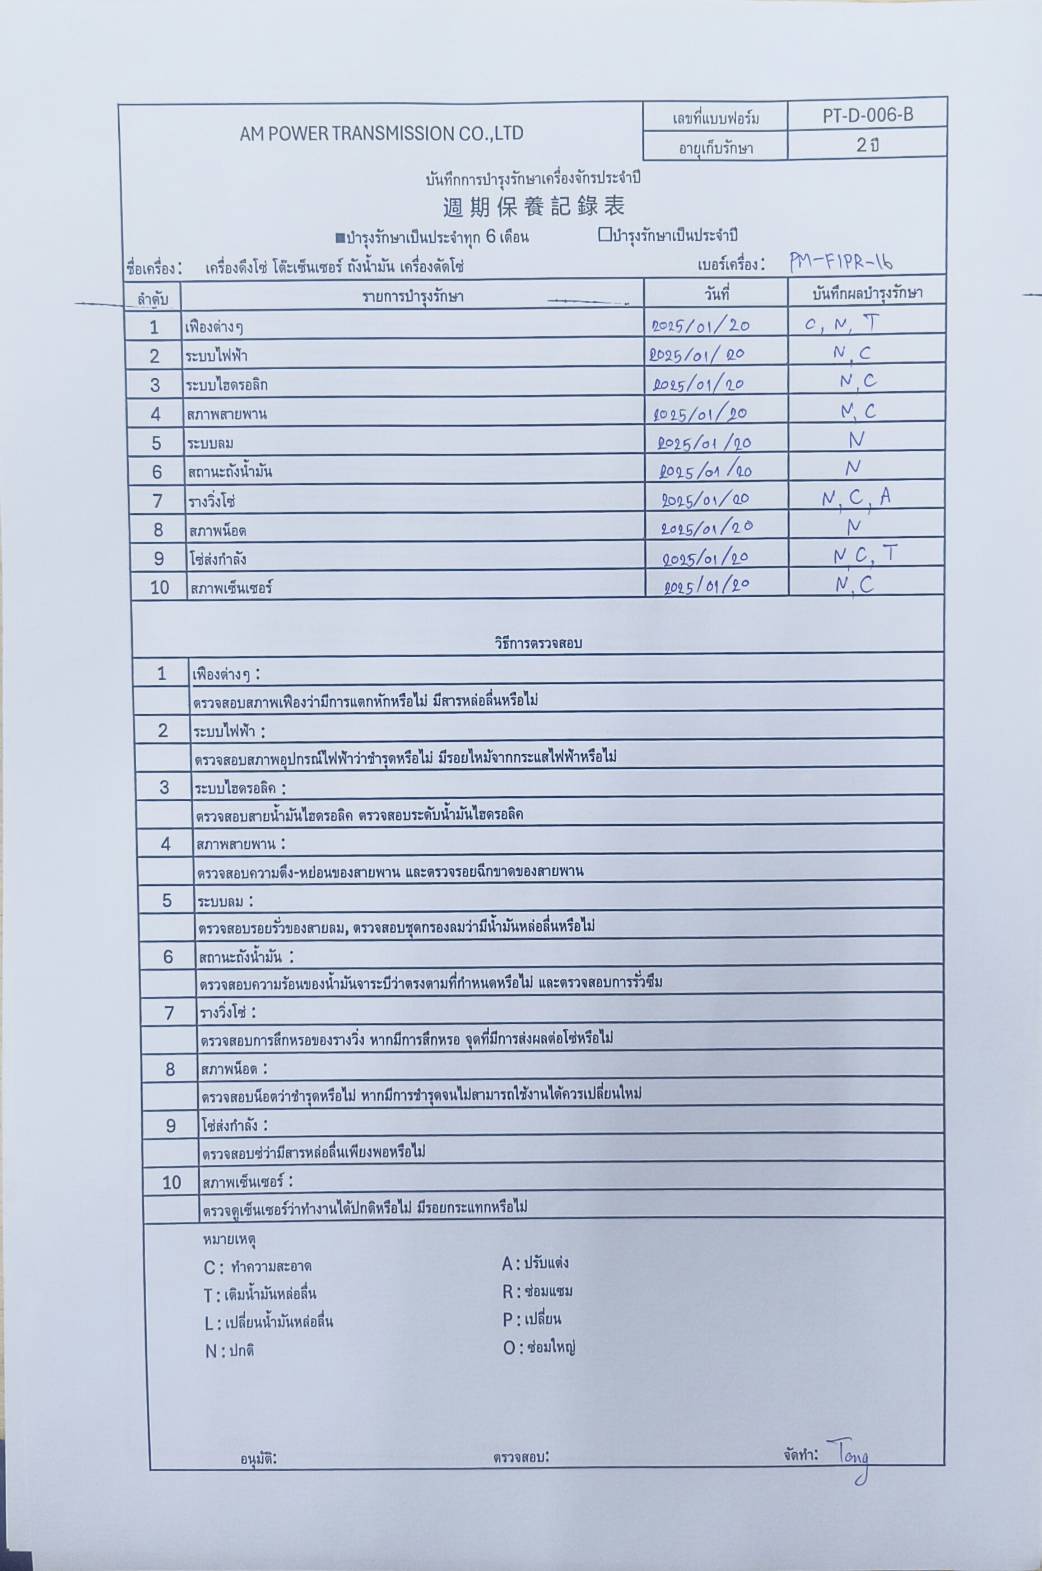 AM POWER TRANSMISSION CO.,LTD
เลขที่แบบฟอร์ม PT-D-006-B
อายุเก็บรักษา 2 ปี
บันทึกการบำรุงรักษาเครื่องจักรประจำปี
週期保養記錄表
■บำรุงรักษาเป็นประจำทุก 6 เดือน □บำรุงรักษาเป็นประจำปี
ชื่อเครื่อง: เครื่องดึงโซ่ โต๊ะเซ็นเซอร์ ถังน้ำมัน เครื่องตัดโซ่ เบอร์เครื่อง: PM-F1PR-16
ลำดับ รายการบำรุงรักษา วันที่ บันทึกผลบำรุงรักษา
1 เฟืองต่างๆ 2025/01/20 C, N, T
2 ระบบไฟฟ้า 2025/01/20 N, C
3 ระบบไฮดรอลิก 2025/01/20 N, C
4 สภาพสายพาน 2025/01/20 N, C
5 ระบบลม 2025/01/20 N
6 สถานะถังน้ำมัน 2025/01/20 N
7 รางวิ่งโซ่ 2025/01/20 N, C, A
8 สภาพน็อต 2025/01/20 N
9 โซ่ส่งกำลัง 2025/01/20 N, C, T
10 สภาพเซ็นเซอร์ 2025/01/20 N, C
วิธีการตรวจสอบ
1 เฟืองต่างๆ :
ตรวจสอบสภาพเฟืองว่ามีการแตกหักหรือไม่ มีสารหล่อลื่นหรือไม่
2 ระบบไฟฟ้า :
ตรวจสอบสภาพอุปกรณ์ไฟฟ้าว่าชำรุดหรือไม่ มีรอยไหม้จากกระแสไฟฟ้าหรือไม่
3 ระบบไฮดรอลิค :
ตรวจสอบสายน้ำมันไฮดรอลิค ตรวจสอบระดับน้ำมันไฮดรอลิค
4 สภาพสายพาน :
ตรวจสอบความตึง-หย่อนของสายพาน และตรวจรอยฉีกขาดของสายพาน
5 ระบบลม :
ตรวจสอบรอยรั่วของสายลม, ตรวจสอบชุดกรองลมว่ามีน้ำมันหล่อลื่นหรือไม่
6 สถานะถังน้ำมัน :
ตรวจสอบความร้อนของน้ำมันจาระบีว่าตรงตามที่กำหนดหรือไม่ และตรวจสอบการรั่วซึม
7 รางวิ่งโซ่ :
ตรวจสอบการสึกหรอของรางวิ่ง หากมีการสึกหรอ จุดที่มีการส่งผลต่อโซ่หรือไม่
8 สภาพน็อต :
ตรวจสอบน็อตว่าชำรุดหรือไม่ หากมีการชำรุดจนไม่สามารถใช้งานได้ควรเปลี่ยนใหม่
9 โซ่ส่งกำลัง :
ตรวจสอบซ่ว่ามีสารหล่อลื่นเพียงพอหรือไม่
10 สภาพเซ็นเซอร์ :
ตรวจดูเซ็นเซอร์ว่าทำงานได้ปกติหรือไม่ มีรอยกระแทกหรือไม่
หมายเหตุ
C : ทำความสะอาด A : ปรับแต่ง
T : เติมน้ำมันหล่อลื่น R : ซ่อมแซม
L : เปลี่ยนน้ำมันหล่อลื่น P : เปลี่ยน
N : ปกติ O : ซ่อมใหญ่
อนุมัติ: ตรวจสอบ: จัดทำ: Tong